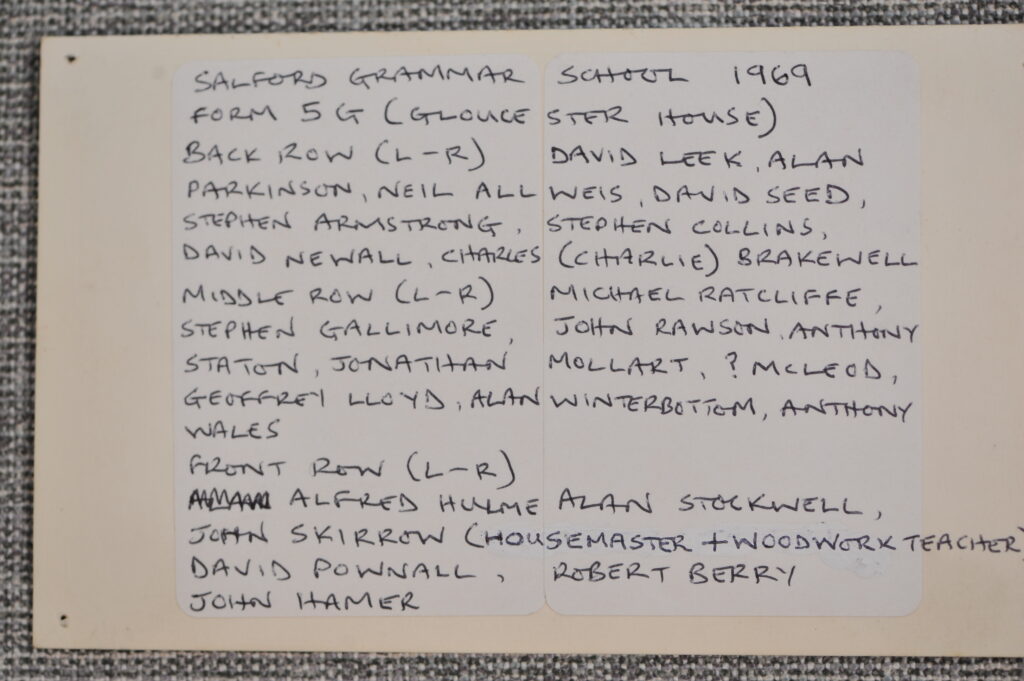 SALFORD GRAMMAR SCHOOL 1969
FORM 5G (GLOUCESTER HOUSE)
BACK ROW (L-R) DAVID LEEK, ALAN
PARKINSON, NEIL ALLWEIS, DAVID SEED,
STEPHEN ARMSTRONG, STEPHEN COLLINS,
DAVID NEWALL, CHARLES (CHARLIE) BRAKEWELL
MIDDLE ROW (L-R) MICHAEL RATCLIFFE,
STEPHEN GALLIMORE, JOHN RAWSON, ANTHONY
STATON, JONATHAN MOLLART, ? MCLEOD,
GEOFFREY LLOYD, ALAN WINTERBOTTOM, ANTHONY
WALES
FRONT ROW (L-R)
ALFRED HULME ALAN STOCKWELL,
JOHN SKIRROW (HOUSEMASTER + WOODWORK TEACHER)
DAVID POWNALL, ROBERT BERRY
JOHN HAMER